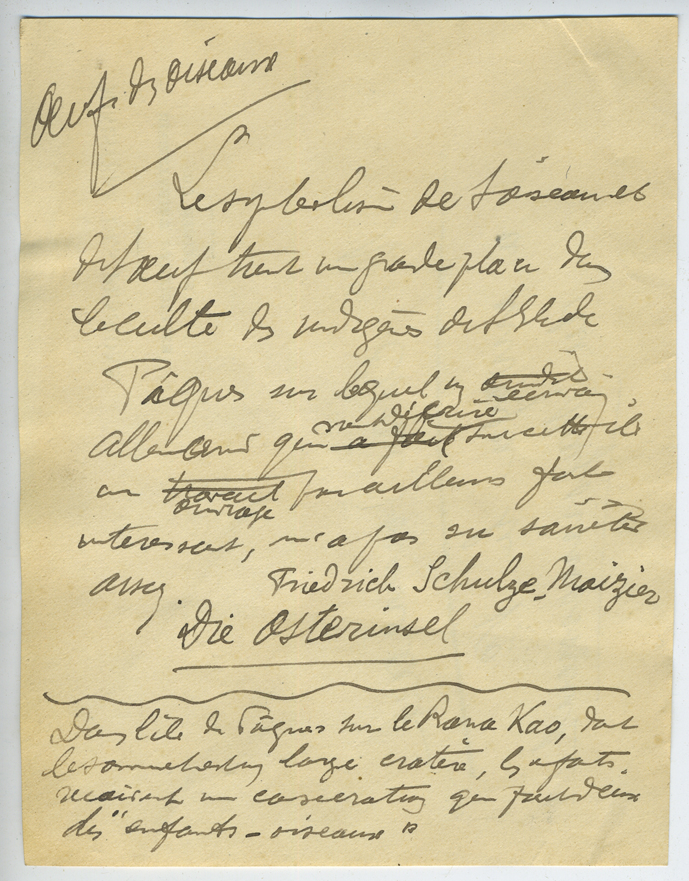 Oeufs des oiseaux
Le symbolisme de l'oiseau et
de l'oeuf tient une grande place dans
le culte des indigènes de l'Ile de
Pâques sur lequel un écrivain
allemand qui a fait sur cette île
un travail par ailleurs fort
ouvrage
interessant, n'a pas su
assez. Friedrich Schulze-Maizier
Die Osterinsel
Dans l'île de Pâques sur le Rana Kao, dont
le sommet est un large cratère, les enfants
une consécration qui fait d'eux
des "enfants-oiseaux"